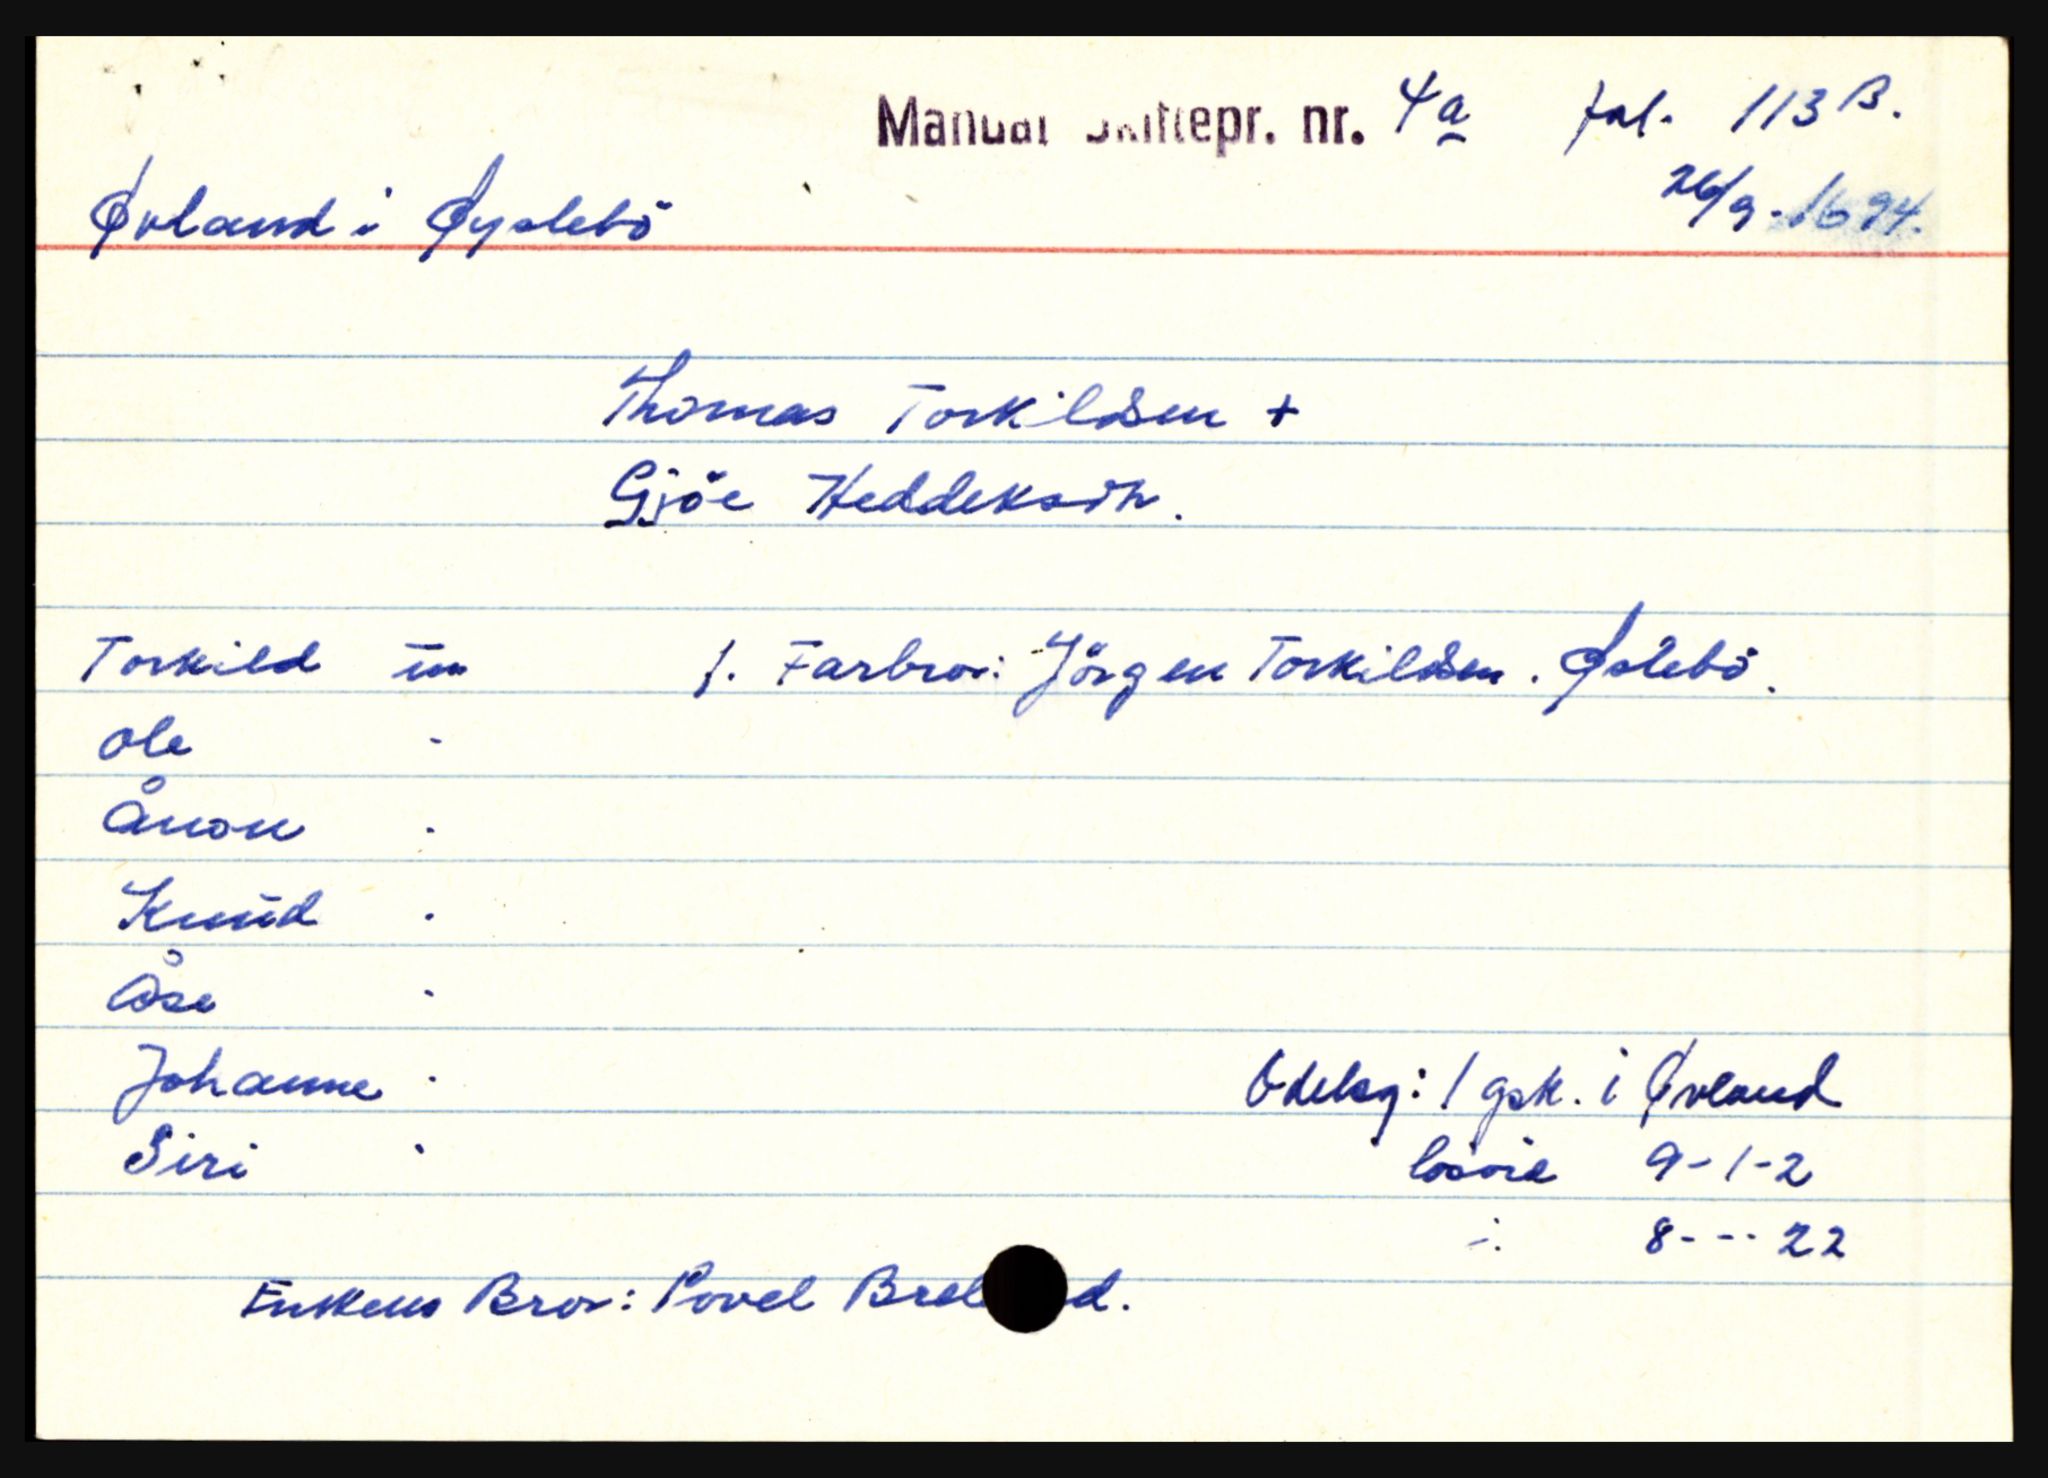 Mandal Skiftepr. nr. 4a fol. 113 B.
26/9-1694.
Øvland i Øyslebö
Thomas Torkildsen +
Gjöe Heddeksdtr.
Torkild um 1. Farbror: Jörgen Torkildsen. Øslebö.
Ole -
Ånon -
Knud -
Åse -
Johanne - Odelsg: 1 gsk. i Øvland
Siri - lösöre 9-1-2
-:- 8---22
Enkens Bror: Povel Brel d.